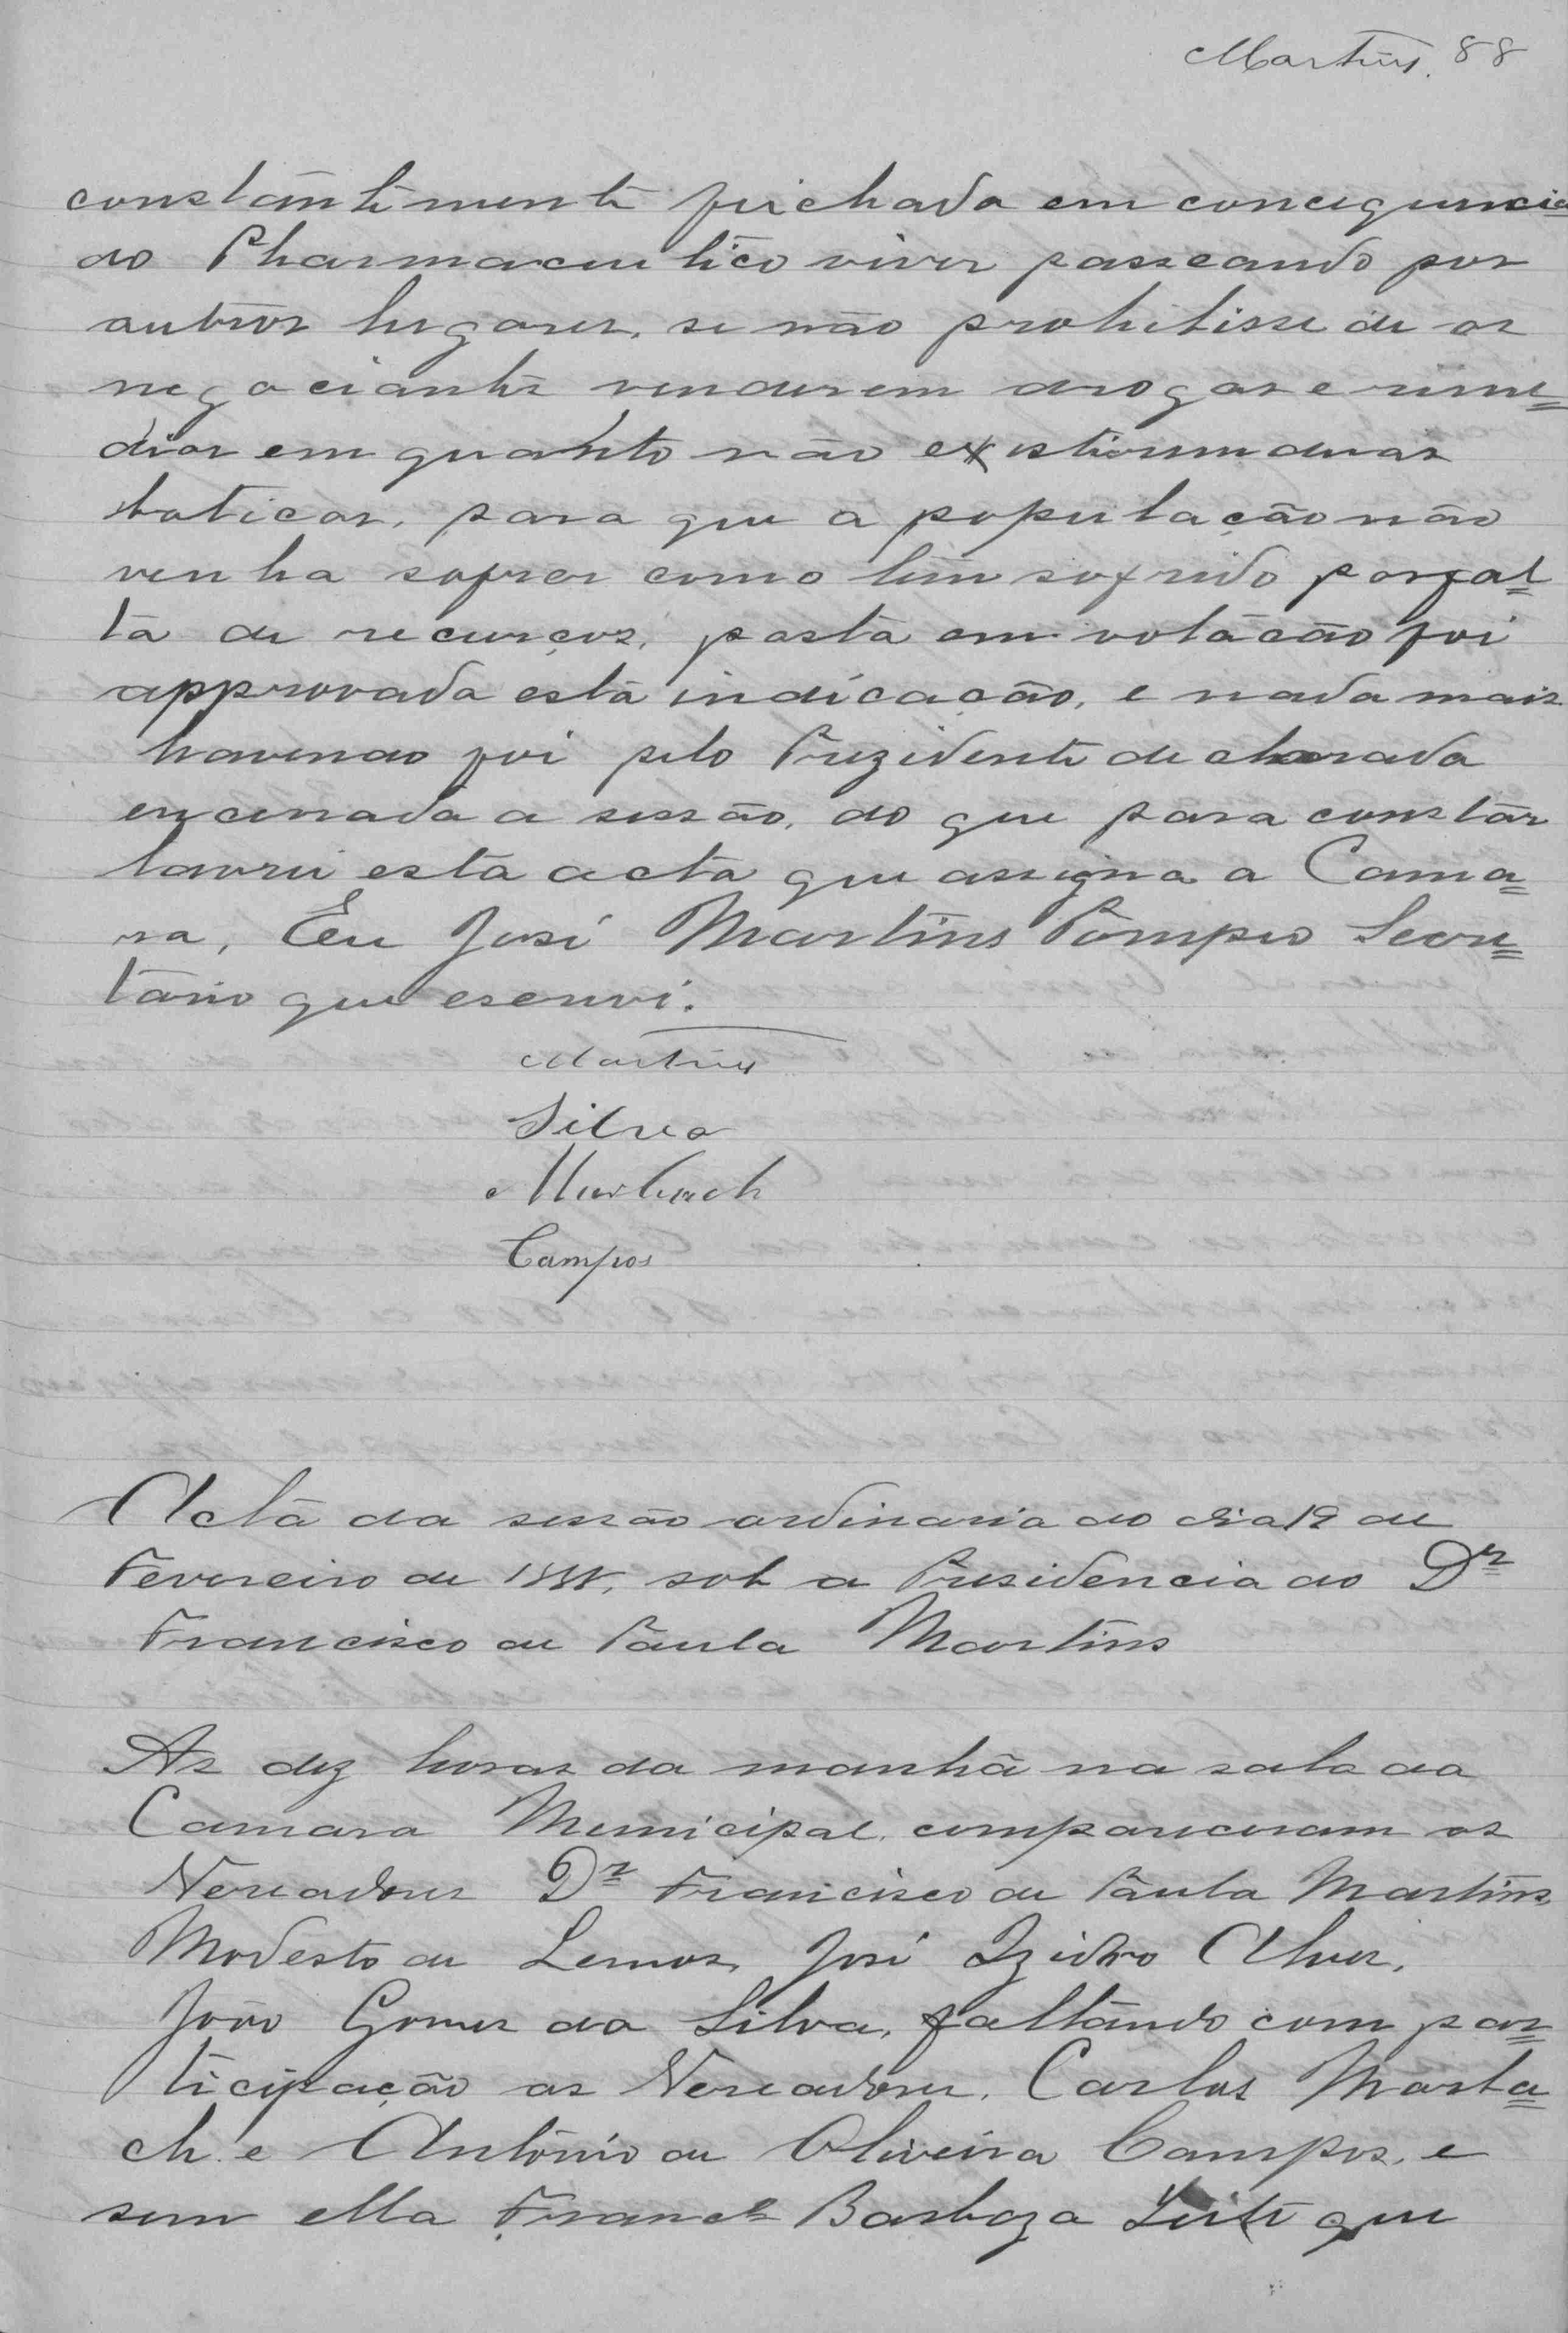 Martins. 88
constantimente feichada em concequencia
do Pharmaceutico viver passeando por
outros lugares, se não prohibisse de os
negociantes venderem drogas e reme=
dios em quanto não existirem duas
boticas, para que a população não
venha sofrer como tem sofrido por fal=
ta de recurços, posta em votacão foi
approvada esta indicação, e nada mais
havendo foi pelo Prezidente declarada
encerrada a sessão, do que para constar
lavrei esta acta que assigna a Cama=
ra, Eu José Martins Pompeo Secre=
tario que escrevi.
Martins
Silva
Murbach
Campos
Acta da sessão ordinaria do dia 19 de
Fevereiro de 1888, sob a Presidencia do Dr
Francisco de Paula Martins
As dez horas da manhã na sala da
Camara Municipal, compareceram os
Vereadores Dr Francisco de Paula Martins,
Modesto de Lemos, José Izidro Alves,
João Gomes da Silva, faltando com par=
ticipação os Vereadores, Carlos Morba=
ch e Antônio de Oliveira Campos, e
sem ella Francº Barboza Leite que